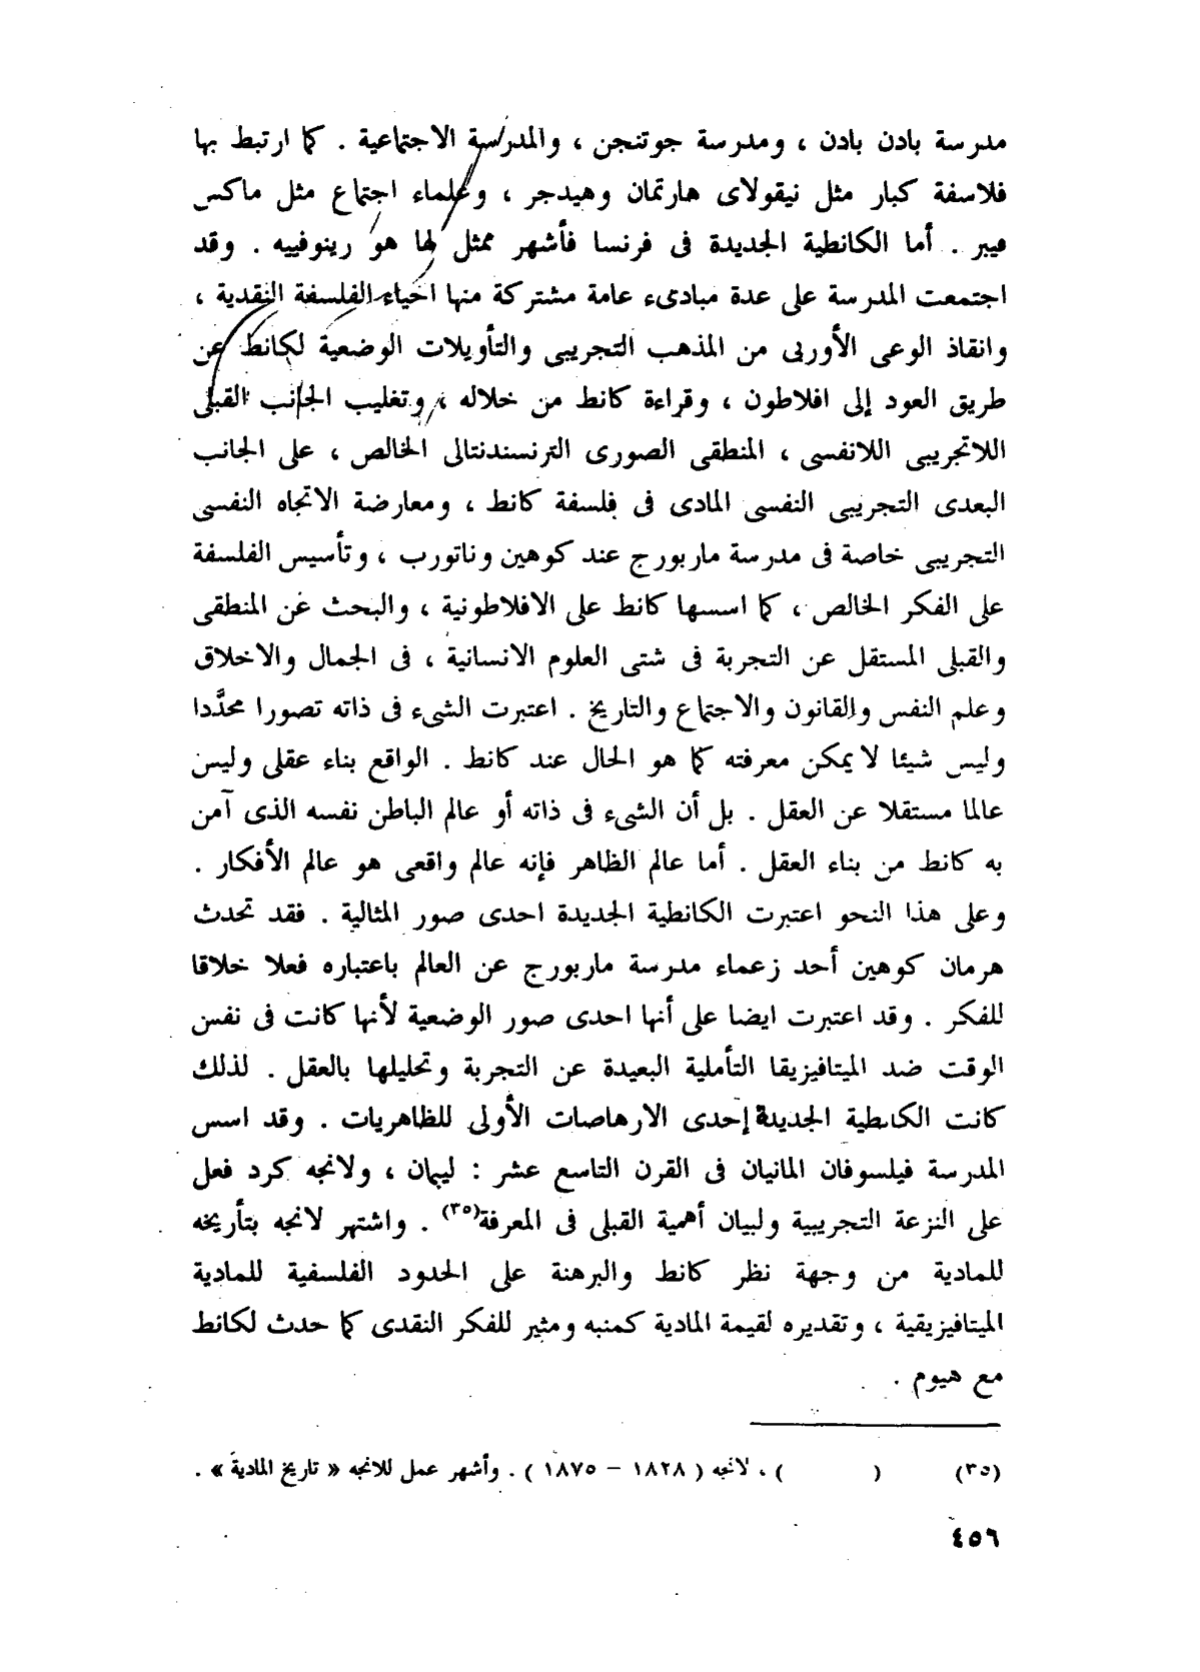 مدرسة بادن بادن ، ومدرسة جوتنجن ، والمدرسة الاجتماعية . كما ارتبط بها
فلاسفة كبار مثل نيقولاى هارتمان وهيدجر ، وعلماء اجتماع مثل ماكس
فيبر . أما الكانطية الجديدة فى فرنسا فأشهر ممثل لها هو رينوفييه . وقد
اجتمعت المدرسة على عدة مبادىء عامة مشتركة منها احياء الفلسفة النقدية ،
وانقاذ الوعى الأوربى من المذهب التجريبى والتأويلات الوضعية لكانط عن
طريق العود إلى افلاطون ، وقراءة كانط من خلاله ، وتغليب الجانب القبلى
اللاتجريبى اللانفسى ، المنطقى الصورى الترنسندنتالى الخالص ، على الجانب
البعدى التجريبى النفسى المادى فى فلسفة كانط ، ومعارضة الاتجاه النفسى
التجريبى خاصة فى مدرسة ماربورج عند كوهين وناتورب ، وتأسيس الفلسفة
على الفكر الخالص ، كما اسسها كانط على الافلاطونية ، والبحث عن المنطقى
والقبلى المستقل عن التجربة فى شتى العلوم الانسانية ، فى الجمال والاخلاق
وعلم النفس والقانون والاجتماع والتاريخ . اعتبرت الشىء فى ذاته تصورا محدَّدا
وليس شيئا لا يمكن معرفته كما هو الحال عند كانط . الواقع بناء عقلى وليس
عالما مستقلا عن العقل . بل أن الشىء فى ذاته أو عالم الباطن نفسه الذى آمن
به كانط من بناء العقل . أما عالم الظاهر فإنه عالم واقعى هو عالم الأفكار .
وعلى هذا النحو اعتبرت الكانطية الجديدة احدى صور المثالية . فقد تحدث
هرمان كوهين أحد زعماء مدرسة ماربورج عن العالم باعتباره فعلا خلاقا
للفكر . وقد اعتبرت ايضا على أنها احدى صور الوضعية لأنها كانت فى نفس
الوقت ضد الميتافيزيقا التأملية البعيدة عن التجربة وتحليلها بالعقل . لذلك
كانت الكانطية الجديدة إحدى الارهاصات الأولى للظاهريات . وقد اسس
المدرسة فيلسوفان المانيان فى القرن التاسع عشر : ليبمان ، ولانجه كرد فعل
على النزعة التجريبية ولبيان أهمية القبلى فى المعرفة(٣٥) . واشتهر لانجه بتأريخه
للمادية من وجهة نظر كانط والبرهنة على الحدود الفلسفية للمادية
الميتافيزيقية ، وتقديره لقيمة المادية كمنبه ومثير للفكر النقدى كما حدث لكانط
مع هيوم .
(٣٥) ( ) ، لانجه ( ١٨٢٨ – ١٨٧٥ ) . وأشهر عمل للانجه « تاريخ المادية » .
٤٥٦